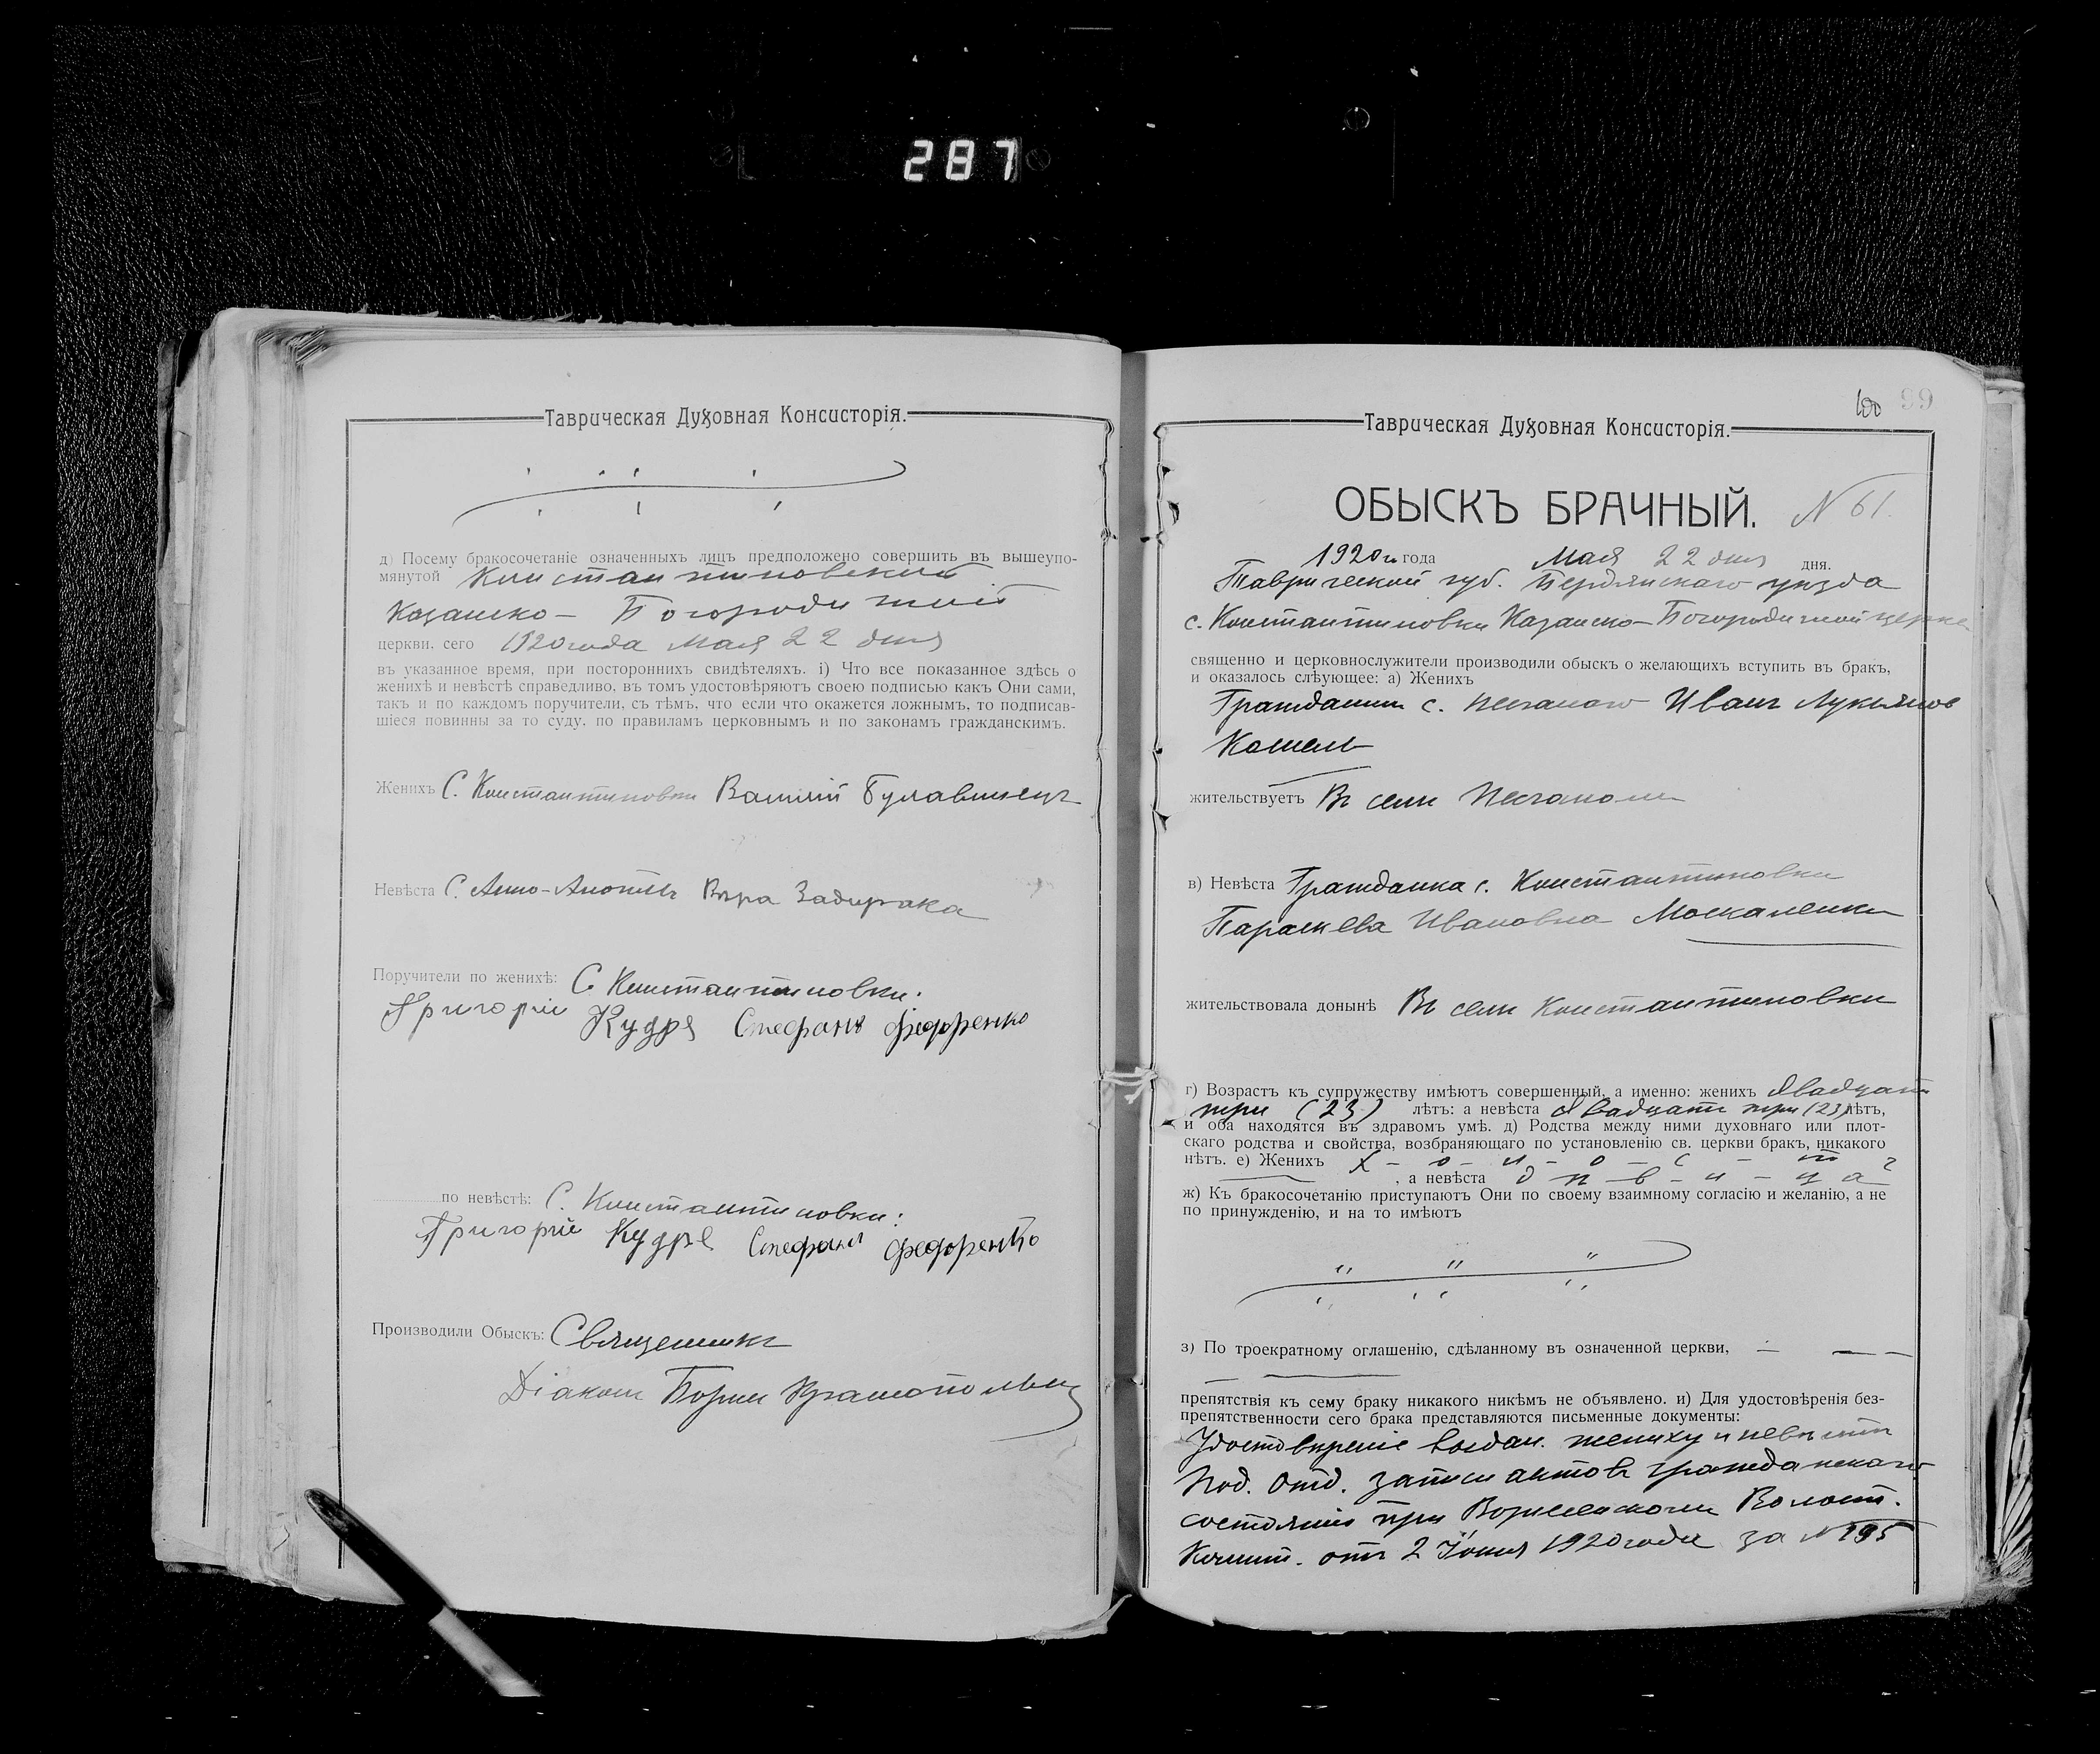 287
Таврическая Духовная Консисторія.
д) Посему бракосочетаніе означенныхъ лицъ предположено совершить въ вышеупо-
мянутой Константиновской
Казанско- Богородичной
церкви, сего 1920 года Мая 22 дня
въ указанное время, при постороннихъ свидѣтеляхъ. і) Что все показанное здѣсь о
женихѣ и невѣстѣ справедливо, въ томъ удостовѣряютъ своею подписью какъ Они сами,
такъ и по каждомъ поручители, съ тѣмъ, что если что окажется ложнымъ, то подписав-
шіеся повинны за то суду, по правиламъ церковнымъ и по законамъ гражданскимъ.
Женихъ С. Константиновки Василій Булавинецъ
Невѣста С. Анно-Вѣра Задирака
Поручители по женихѣ: С. Константиновки:
Григорій Кудря Стефанъ Федоренко
по невѣстѣ: С. Константиновки:
Григорій Кудря Стефанъ Федоренко
Производили Обыскъ: Священникъ
Діаконъ Борисъ
100 99
Таврическая Духовная Консисторія.
ОБЫСКЪ БРАЧНЫЙ. N 61.
1920 г. года Мая 22 дня дня.
Таврической губ. Бердянскаго уѣзда
с. Константиновки Казанско-Богородичной церкв
священно и церковнослужители производили обыскъ о желающихъ вступить въ бракъ,
и оказалось слѣующее: а) Женихъ
Гражданинъ с. Песчаного Иванъ Лукьянов
Кошель
жительствуетъ Въ селѣ Песчаномъ
в) Невѣста Гражданка с. Константиновки
Параскева Ивановна Москаленко
жительствовала донынѣ Въ селѣ Константиновки
г) Возрастъ къ супружеству имѣютъ совершенный, а именно: женихъ двадцать
три (23) лѣтъ: а невѣста двадцать три (23) лѣтъ,
и оба находятся въ здравомъ умѣ. д) Родства между ними духовнаго или плот-
скаго родства и свойства, возбраняющаго по установленію св. церкви бракъ, никакого
нѣтъ. е) Женихъ х-о-л-о-с-т
, а невѣста д-ѣ-в-и-ц-а
ж) Къ бракосочетанію приступаютъ Они по своему взаимному согласію и желанію, а не
по принужденію, и на то имѣютъ
з) По троекратному оглашенію, сдѣланному въ означенной церкви,
препятствія къ сему браку никакого никѣмъ не объявлено. и) Для удостовѣренія без-
препятственности сего брака представляются письменные документы:
Удостовѣреніе выдан. жениху и невѣстѣ
Под. отд. записи актовъ гражданскаго
состоянія при Волост.
Комит. отъ 2 Іюня 1920 года за N 195